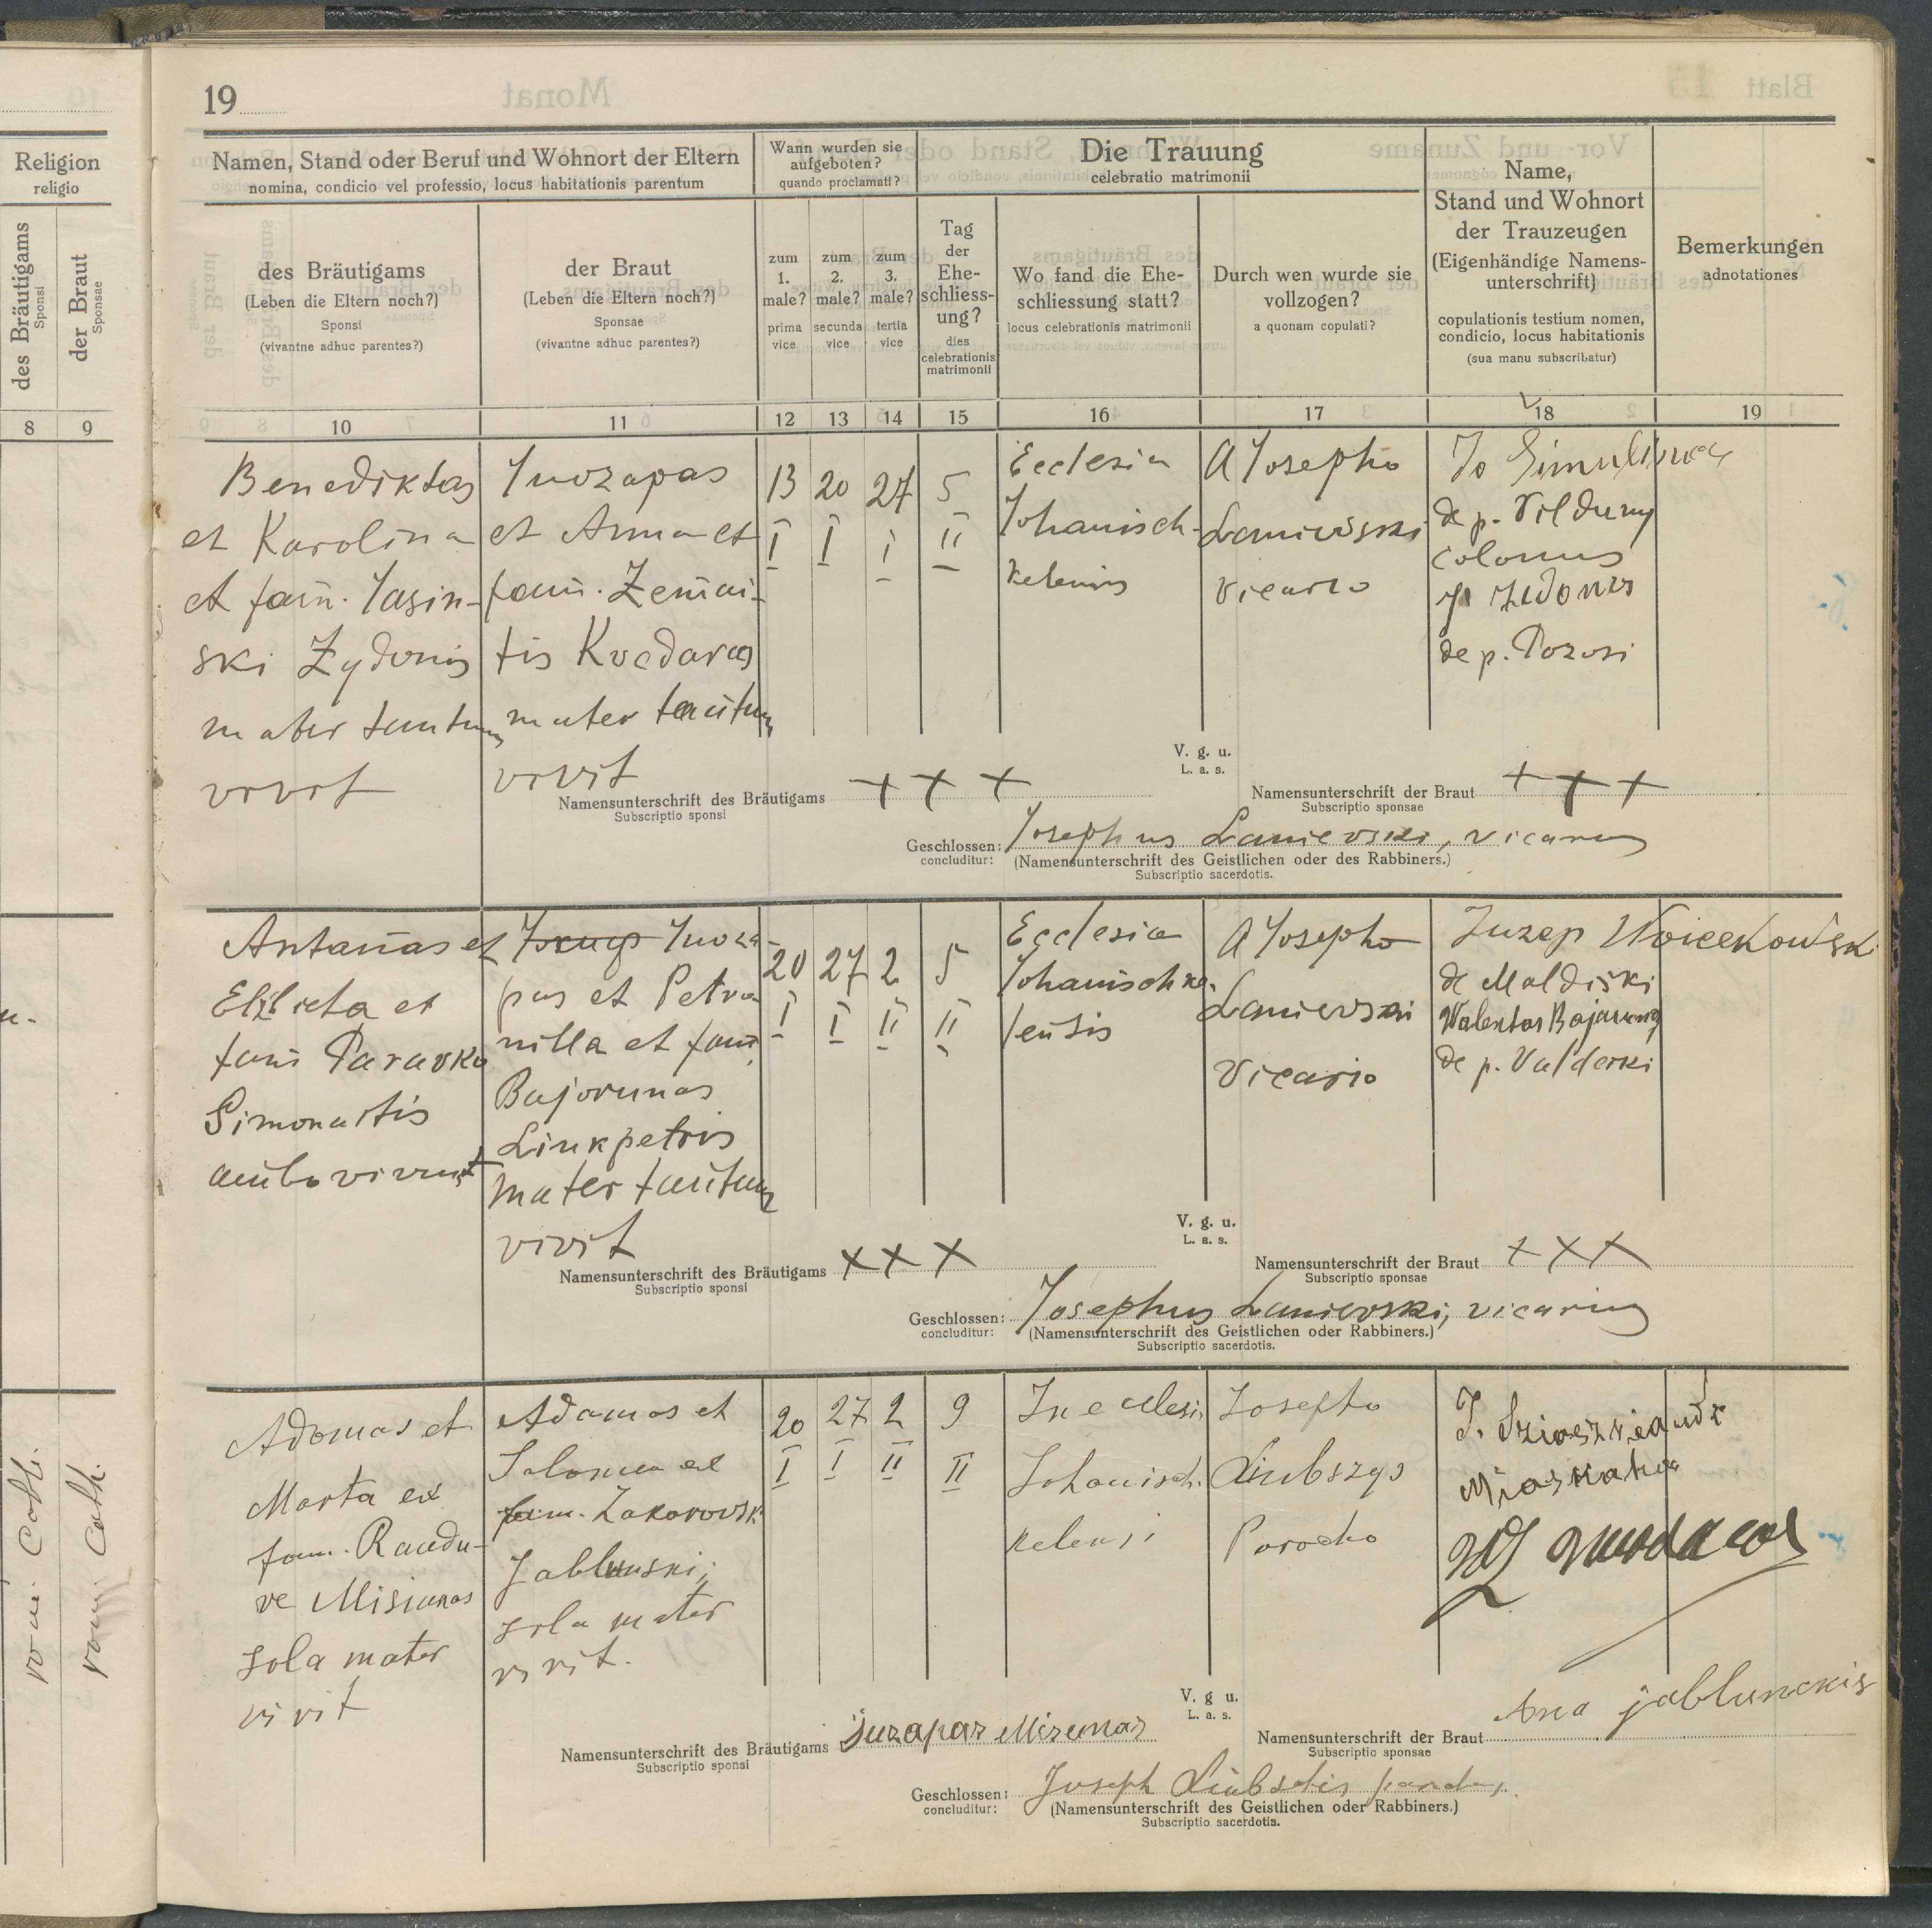 19
Religion
religio
des Bräutigams
Sponsi
der Braut
Sponsae
8 9
rom. Cath.
rom. Cath.
Namen, Stand oder Beruf und Wohnort der Eltern
nomina, condicio vel professio, locus habitationis parentum
Wann wurden sie
aufgeboten?
quando proclamati?
Die Trauung
celebratio matrimonii
Name,
Stand und Wohnort
der Trauzeugen
(Eigenhändige Namens-
unterschrift)
copulationis testium nomen,
condicio, locus habitationis
(sua manu subscribatur)
Bemerkungen
adnotationes
des Bräutigams
(Leben die Eltern noch?)
Sponsi
(vivantne adhuc parentes?)
der Braut
(Leben die Eltern noch?)
Sponsae
(vivantne adhuc parentes?)
zum
1.
male?
prima
vice
zum
2.
male?
secunda
vice
zum
3.
male?
tertia
vice
Tag
der
Ehe-
schliess-
ung?
dies
celebrationis
matrimonii
Wo fand die Ehe-
schliessung statt?
locus celebrationis matrimonii
Durch wen wurde sie
vollzogen?
a quonam copulati?
10 11 12 13 14 15 16 17 18 19
Benediktas
et Karolina
et fam. Jasin-
ski Zydonis
mater tantum
vivit
Juozapas
et Anna et
fam. Zemai-
tis Kvedaras
mater tantum
vivit
13 20 27 5
I I I II
Ecclesia
Johanisch-
kelensis
A Josepho
Lanievski
vicario
de p. Vilduny
colonus
de p.
V. g. u.
L. a. s.
Namensunterschrift des Bräutigams + + +
Subscriptio sponsi
Namensunterschrift der Braut + + +
Subscriptio sponsae
Geschlossen: Josephus Lanievski, vicarius
concluditur: (Namensunterschrift des Geistlichen oder des Rabbiners.)
Subscriptio sacerdotis.
Antanas et
Elzbieta et
fam Paravka
Simonaitis
ambo vivunt
Juoza-
pas et Petro
nilla et fam.
Bajorunas
Linkpetris
mater tantum
vivit
20 27 2 5
I I II II
Ecclesia
Johanischke-
lensis
A Josepho
Lanievski
Vicario
Juzep Woicekowsk
de Maldiski
Walentas Bajarung
de p. Valderki
V. g. u.
L. a. s.
Namensunterschrift des Bräutigams + + +
Subscriptio sponsi
Namensunterschrift der Braut + + +
Subscriptio sponsae
Geschlossen: Josephus Lanievski, vicarius
concluditur: (Namensunterschrift des Geistlichen oder Rabbiners.)
Subscriptio sacerdotis.
Adomas et
Marta ex
fam. Raudu-
ve Misiunas
sola mater
vivit
Adamas et
Salomea ex
fam. Zakarovski
Jablunski;
sola mater
vivit.
20 27 2 9
I I II II
In eclesi
Johanisch-
kelensi
Josepho
Liubszys
Parocho
V. g u.
L. a. s.
Namensunterschrift des Bräutigams Juzapas Misunas
Subscriptio sponsi
Namensunterschrift der Braut Ana jablunckis
Subscriptio sponsae
Geschlossen: Joseph Liubschis
concluditur: (Namensunterschrift des Geistlichen oder Rabbiners.)
Subscriptio sacerdotis.